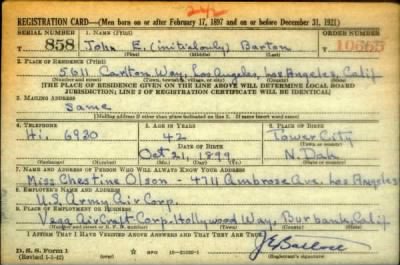 242
REGISTRATION CARD—(Men born on or after February 17, 1897 and on or before December 31, 1921)
SERIAL NUMBER 1. NAME (Print) ORDER NUMBER
T 858 John E. (initial only) Barton 10665
2. PLACE OF RESIDENCE (Print)
5611 Carlton Way, Los Angeles, Los Angeles, Calif
(Number and street) (Town, township, village, or city) (County) (State)
[THE PLACE OF RESIDENCE GIVEN ON THE LINE ABOVE WILL DETERMINE LOCAL BOARD
JURISDICTION; LINE 2 OF REGISTRATION CERTIFICATE WILL BE IDENTICAL]
3. MAILING ADDRESS
Same
[Mailing address if other than place indicated on line 2. If same insert word same]
4. TELEPHONE 5. AGE IN YEARS 6. PLACE OF BIRTH
Hi. 6930 42 Tower City
DATE OF BIRTH (Town or county)
Oct 21, 1899 N. Dak
(Exchange) (Number) (Mo.) (Day) (Yr.) (State or country)
7. NAME AND ADDRESS OF PERSON WHO WILL ALWAYS KNOW YOUR ADDRESS
Miss Chestine Olson - 4711 Ambrose Ave. Los Angeles
8. EMPLOYER'S NAME AND ADDRESS
U.S. Army Air Corp,
9. PLACE OF EMPLOYMENT OR BUSINESS
Vega AirCraft Corp, Hollywood Way, Burbank, Calif
(Number and street or R. F. D. number) (Town) (County) (State)
I AFFIRM THAT I HAVE VERIFIED ABOVE ANSWERS AND THAT THEY ARE TRUE.
D. S. S. Form 1
(Revised 1-1-42) GPO (Registrant's signature)